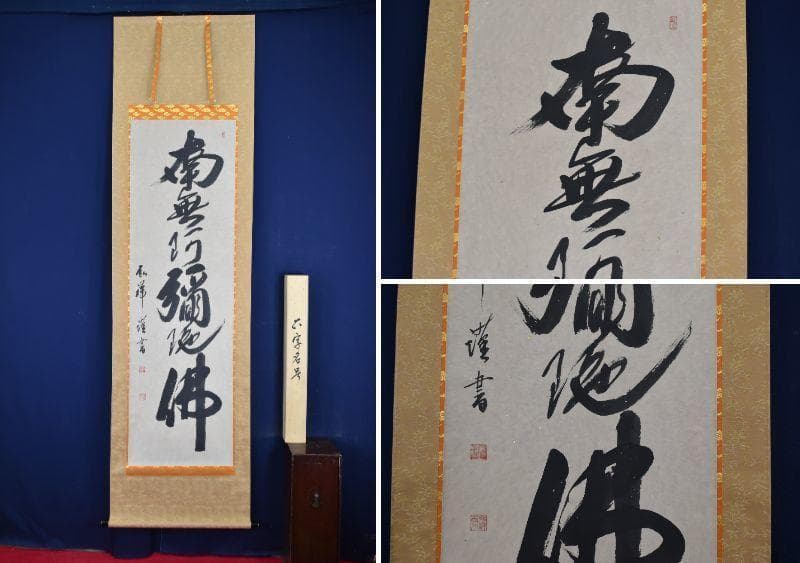 南無阿彌陀佛
謹書
六字名号
南無
彌陀佛
謹書